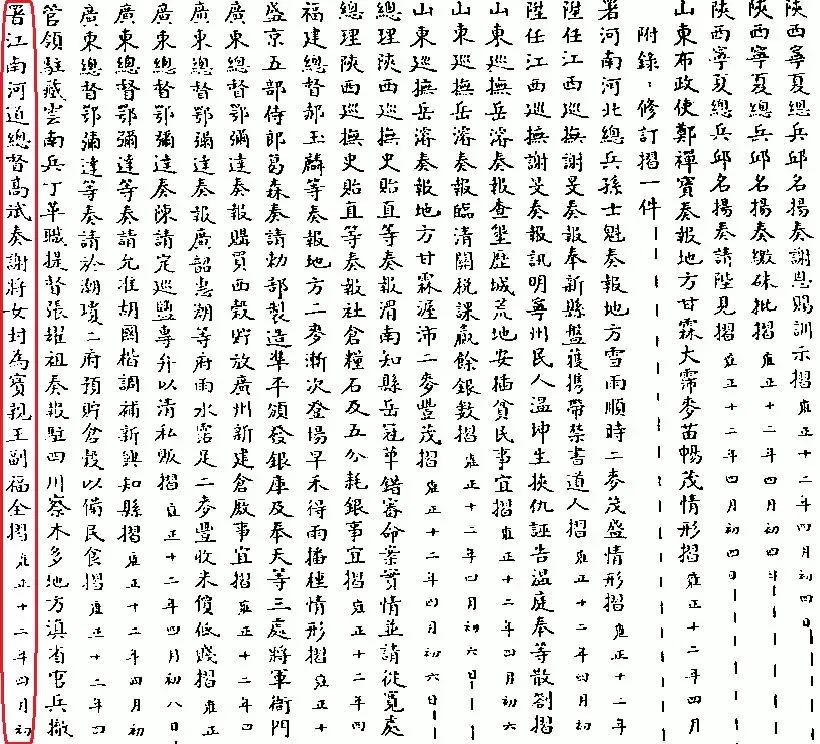 陝西寧夏總兵邱名揚奏謝恩賜訓示摺 雍正十二年四月初四日
陝西寧夏總兵邱名揚奏繳硃批摺 雍正十二年四月初四日
陝西寧夏總兵邱名揚奏請陛見摺 雍正十二年四月初四日
山東布政使鄭禪寶奏報地方甘霖大霈麥苗暢茂情形摺 雍正十二年四月
附錄:修訂摺一件
署河南河北總兵孫士魁奏報地方雪雨順時二麥茂盛情形摺 雍正十二年
陞任江西巡撫謝旻奏報奉新縣盤獲攜帶禁書道人摺 雍正十二年四月初
陞任江西巡撫謝旻奏報訊明寧州民人溫坤生挾仇誣告溫庭奉等散劄摺
山東巡撫岳濬奏報查墾歷城荒地安插貧民事宜摺 雍正十二年四月初六
山東巡撫岳濬奏報臨清關稅課贏餘銀數摺 雍正十二年四月初六日
山東巡撫岳濬奏報地方甘霖渥沛二麥豐茂摺 雍正十二年四月初六日
總理陝西巡撫史貽直等奏報渭南知縣岳冠華錯審命案實情並請從寬處
總理陝西巡撫史貽直等奏報社倉糧石及五分耗銀事宜摺 雍正十二年四
福建總督郝玉麟等奏報地方二麥漸次登場早禾得雨播種情形摺 雍正十
盛京五部侍郎葛森奏請勅部製造準平頒發銀庫及奉天等三處將軍衙門
廣東總督鄂彌達奏報購買西穀貯放廣州新建倉廒事宜摺 雍正十二年四
廣東總督鄂彌達奏報廣韶惠潮等府雨水霑足二麥豐收米價低賤摺 雍正
廣東總督鄂彌達奏陳請定巡鹽專弁以清私販摺 雍正十二年四月初八日
廣東總督鄂彌達等奏請允准胡國楷調補新興知縣摺 雍正十二年四月初
廣東總督鄂彌達等奏請於潮瓊二府預貯倉穀以備民食摺 雍正十二年四
管領駐藏雲南兵丁革職提督張耀祖奏報駐四川察木多地方滇省官兵撤
署江南河道總督高斌奏謝將女封為寶親王副福金摺 雍正十二年四月初